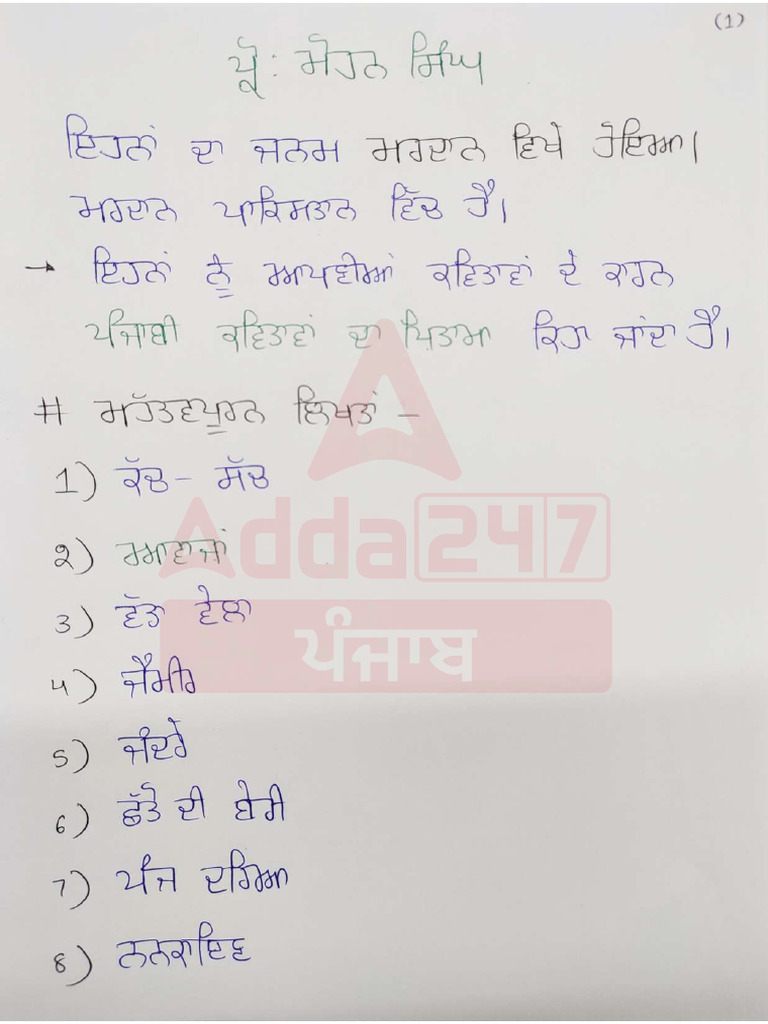 (1)
ਪ੍ਰੋ: ਮੋਹਨ ਸਿੰਘ
ਇਹਨਾਂ ਦਾ ਜਨਮ ਮਰਦਾਨ ਵਿਖੇ ਹੋਇਆ।
ਮਰਦਾਨ ਪਾਕਿਸਤਾਨ ਵਿੱਚ ਹੈ।
→ ਇਹਨਾਂ ਨੂੰ ਆਪਣੀਆਂ ਕਵਿਤਾਵਾਂ ਦੇ ਕਾਰਨ
ਪੰਜਾਬੀ ਕਵਿਤਾਵਾਂ ਦਾ ਪਿਤਾਮਾ ਕਿਹਾ ਜਾਂਦਾ ਹੈ।
# ਮਹੱਤਵਪੂਰਨ ਲਿਖਤਾਂ –
1) ਕੱਚ - ਸੱਚ
2) ਆਵਾਜਾਂ
3) ਵੱਤਾ ਵੇਲਾ
4) ਜੈਮੀਰ
5) ਜੰਦਰੇ
6) ਛੱਤੋ ਦੀ ਬੇਰੀ
7) ਪੰਜ ਦਰਿਆ
8) ਨਨਕਾਇਣ
Adda247
ਪੰਜਾਬ